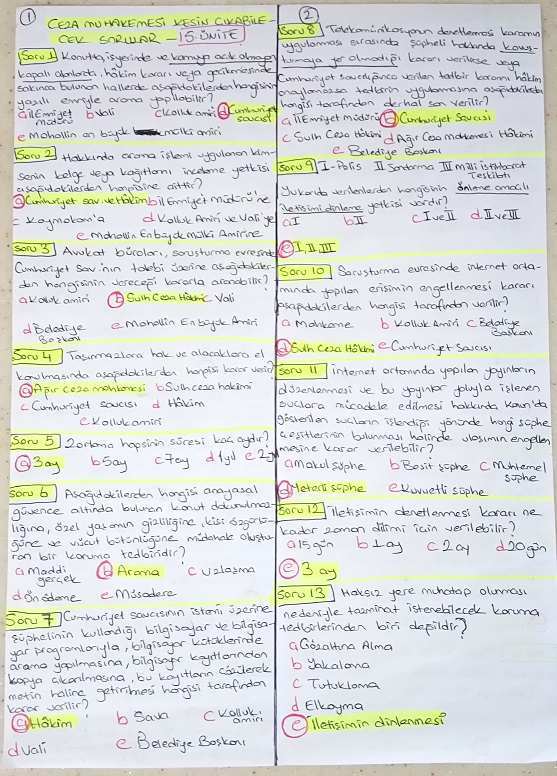 1
CEZA MUHAKEMESİ KESİN ÇIKABİLE-
CEK SORULAR - 5. ÜNİTE
Soru 1 Konutta, işyerinde ve kamuya açık olmayan
kapalı alanlarda, hâkim kararı veya gecikmesinde
sakınca bulunan hallerde aşağıdakilerden hangisinin
yazılı emriyle arama yapılabilir?
a İl Emniyet müdürü b Vali c Kolluk amiri d Cumhuriyet savcısı
e Mahallin en büyük mülki amiri
Soru 2 Hakkında arama işlemi uygulanan kim-
senin belge veya kağıtlarını inceleme yetkisi
aşağıdakilerden hangisine aittir?
a Cumhuriyet sav. ve Hâkim b İl Emniyet Müdürü'ne
c Kaymakam'a d Kolluk Amiri ve Vali'ye
e Mahallin En büyük mülki Amirine
Soru 3 Avukat büroları, soruşturma evresinde
Cumhuriyet Sav.'nın talebi üzerine aşağıdakiler-
den hangisinin vereceği kararla aranabilir?
a Kolluk amiri b Sulh Ceza Hâkimi c Vali
d Belediye Başkanı e Mahallin En büyük Amiri
Soru 4 Taşınmazlara hak ve alacaklara el
konulmasında aşağıdakilerden hangisi karar verir?
a Ağır ceza mahkemesi b Sulh ceza hakimi
c Cumhuriyet savcısı d Hâkim
e Kolluk amiri
Soru 5 Zorlama hapsinin süresi kaç aydır?
a 3 ay b 5 ay c 7 ay d 1 yıl e 2 yıl
Soru 6 Aşağıdakilerden hangisi anayasal
güvence altında bulunan konut dokunulmaz-
lığına, özel yaşamın gizliliğine, kişi özgürlü-
ğüne ve vücut bütünlüğüne müdahale oluştu-
ran bir koruma tedbiridir?
a Maddi gerçek b Arama c Uzlaşma
d Ön ödeme e Müsadere
Soru 7 Cumhuriyet savcısının istemi üzerine
şüphelinin kullandığı bilgisayar ve bilgisa-
yar programlarıyla, bilgisayar kütüklerinde
arama yapılmasına, bilgisayar kayıtlarından
kopya çıkarılmasına, bu kayıtların çözülerek
metin haline getirilmesi hangisi tarafından
karar verilir?
a Hâkim b Savcı c Kolluk amiri
d Vali e Belediye Başkanı
2
Soru 8 Telekomünikasyonun denetlenmesi kararının
uygulanması sırasında şüpheli hakkında kovuş-
turmaya yer olmadığı kararı verilirse veya
Cumhuriyet savcısınca verilen tedbir kararını hâkim
onaylamazsa tedbirin uygulanmasına aşağıdakilerden
hangisi tarafından derhal son verilir?
a İl Emniyet müdürü b Cumhuriyet Savcısı
c Sulh Ceza Hâkimi d Ağır Ceza Mahkemesi Hâkimi
e Belediye Başkanı
Soru 9 I-Polis II Jandarma III milli istihbarat Teşkilatı
Yukarıda verilenlerden hangisinin önleme amaçlı
iletişimi dinleme yetkisi vardır?
a I b II c I ve II d II ve III
e I, II, III
Soru 10 Soruşturma evresinde internet orta-
mında yapılan erişimin engellenmesi kararı
aşağıdakilerden hangisi tarafından verilir?
a Mahkeme b Kolluk Amiri c Belediye Başkanı
d Sulh Ceza Hâkimi e Cumhuriyet Savcısı
Soru 11 internet ortamında yapılan yayınların
düzenlenmesi ve bu yayınlar yoluyla işlenen
suçlara mücadele edilmesi hakkında Kanun'da
gösterilen suçların işlendiği yönünde hangi şüphe
çeşitlerinin bulunması halinde ulaşımın engellen
mesine karar verilebilir?
a Makul şüphe b Basit şüphe c Muhtemel şüphe
d Yeterli şüphe e Kuvvetli şüphe
Soru 12 İletişimin denetlenmesi kararı ne
kadar zaman dilimi için verilebilir?
a 15 gün b 1 ay c 2 ay d 20 gün
e 3 ay
Soru 13 Haksız yere muhatap olunması
nedeniyle tazminat istenebilecek koruma
tedbirlerinden biri değildir?
a Gözaltına Alma
b Yakalama
c Tutuklama
d Elkoyma
e İletişimin dinlenmesi